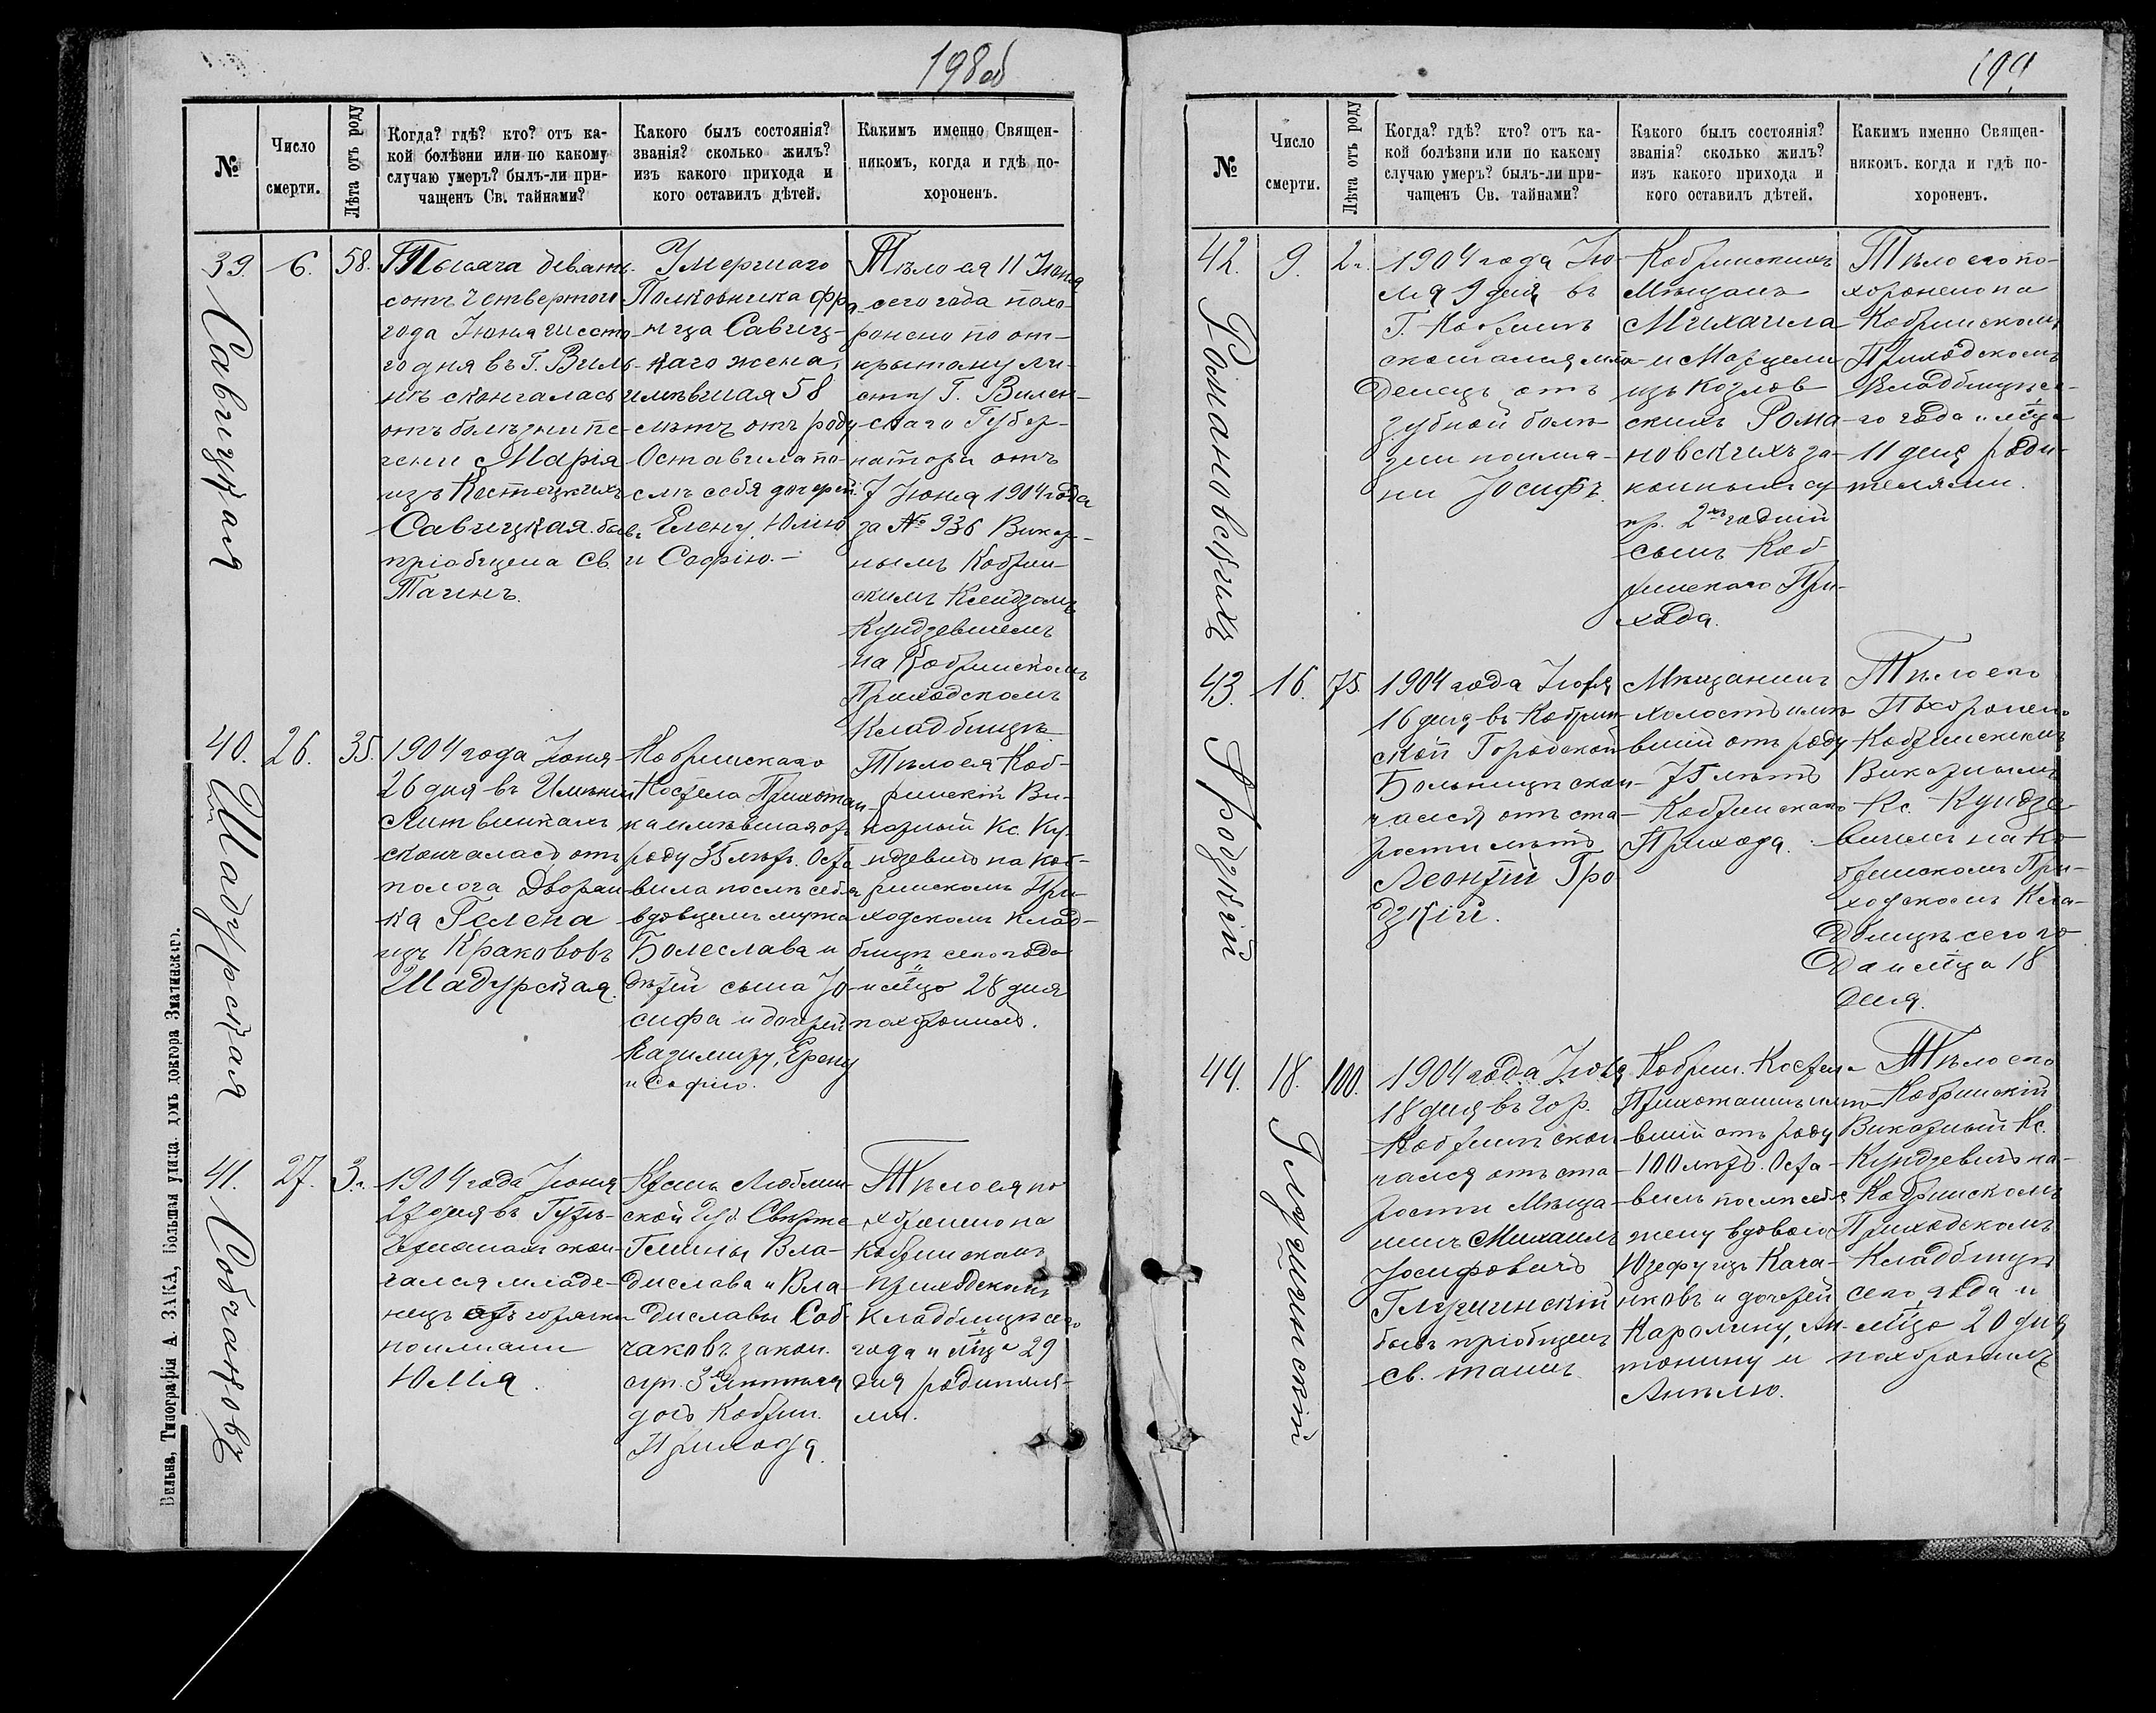 198об
№
Число
смерти.
Лѣта отъ роду
Когда? гдѣ? кто? отъ ка-
кой болѣзни или по какому
случаю умеръ? былъ-ли при-
чащенъ Св. тайнами?
Какого былъ состоянія?
званія? сколько жилъ?
изъ какого прихода и
кого оставилъ дѣтей.
Какимъ именно Священ-
никомъ, когда и гдѣ по-
хороненъ.
39.
Савицкая
6.
58.
Тысяча девять-
сотъ четвертого
года Іюня шесто-
го дня въ Г. Виль-
нѣ скончалась
отъ болѣзни пе-
чени Марія
изъ Костецкихъ
Савицкая. бывъ
пріобщена Св.
Таинъ.
Умершаго
Полковника Фра
нца Савиц-
каго жена,
имѣвшая 58
лѣтъ отъ роду
Оставила по-
слѣ себя дочерей
Елену, Юлію
и Софію. —
Тѣло ея 11 Іюня
сего года похо-
ронено по от-
крытому ли-
сту Г. Вилен-
скаго Губер-
натора отъ
7 Іюня 1904 года
за № 936 Викар-
нымъ Кобрин-
скимъ Ксендзомъ
Кундзевичемъ
на Кобринскомъ
Приходскомъ
Кладбищѣ
40.
Шадурская
26.
35.
1904 года Іюня
26 дня въ Имѣніи
Литвинкахъ
скончалась отъ
полога Дворян-
ка Гелена
изъ Краковъ
Шадурская.
Кобринскаго
Костела Прихожан-
ка имѣвшая отъ
роду 35 лѣтъ. Оста
вила послѣ себя
вдовцемъ мужа
Болеслава и
дѣтей сына Іо-
сифа и дочерей
Казимиру, Ерену
и Софію.
Тѣло ея Коб-
ринскій Ви-
карный Кс. Ку-
ндзевичъ на Коб-
ринскомъ При-
ходскомъ Клад-
бищѣ сего года
и мѣсца 28 дня
похоронилъ.
41.
Собчаковъ
27.
3 г.
1904 года Іюня
27 дня въ
скон-
чался младе-
нецъ отъ горячки
по имени
Юлія.
Крест. Люблин-
ской губ.
Гмины Вла-
дислава и Вла-
диславы Соб-
чаковъ закон.
супр. 3хъ лѣтняя
дочь Кобрин.
Прихода.
Тѣло ея по
хоронено на
Кобринскомъ
Приходскомъ
Кладбищѣ сего
года и мѣца 29
дня родителя-
ми.
Вильна, Типографія А. ЗАКА, Большая улица. домъ доктора
199
№
Число
смерти.
Лѣта отъ роду
Когда? гдѣ? кто? отъ ка-
кой болѣзни или по какому
случаю умеръ? былъ-ли при-
чащенъ Св. тайнами?
Какого былъ состоянія?
званія? сколько жилъ?
изъ какого прихода и
кого оставилъ дѣтей.
Какимъ именно Священ-
никомъ. когда и гдѣ по-
хороненъ.
42.
Романовскихъ
9.
2 г.
1904 года Ію-
ля 9 дня въ
Г. Кобринѣ
скончался мла-
денецъ отъ
зубной болѣ
зни по име-
ни Іосифъ.
Кобринскихъ
Мѣщанъ
Михаила
и Марцели
изъ Козлов
скихъ Рома
новскихъ за-
конныхъ су
пр. 2хъ годній
сынъ Коб-
ринскаго При-
хода.
Тѣло его по-
хоронено на
Кобринскомъ
Приходскомъ
Кладбищѣ се-
го года и мѣца
11 дня роди-
телями.
43.
Гродзкій
16.
75.
1904 года Іюля
16 дня въ Кобрин-
ской Городской
Больницѣ скон-
чался отъ ста-
рости лѣтъ
Леонтій Гро
дзкій.
Мѣщанинъ
холостъ имѣ
вшій отъ роду
75 лѣтъ
Кобринскаго
Прихода.
Тѣло его
Похоронено
Кобринскимъ
Викарнымъ
Кс. Кундзе
вичемъ на Ко
бринскомъ При-
ходскомъ Кла-
дбищѣ сего го
да и мѣца 18
дня.
44.
Глущинскій
18.
100.
1904 года Іюля
18 дня въ гор.
Кобринѣ скон
чался отъ ста
рости Мѣща-
нинъ Михаилъ
Іосифовичъ
Глущинскій
бывъ пріобщенъ
Св. таинъ.
Кобрин. Костела
Прихожанинъ имѣ-
вшій отъ роду
100 лѣтъ. Оста-
вилъ послѣ себя
жену вдовою
Юзефу изъ Кача-
нковъ и дочерей
Каролину, Ан-
тонину и
Анѣлю.
Тѣло его
Кобринскій
Викарный Кс.
Кундзевичъ на
Кобринскомъ
Приходскомъ
Кладбищѣ
сего года и
мѣца 20 дня
похоронилъ